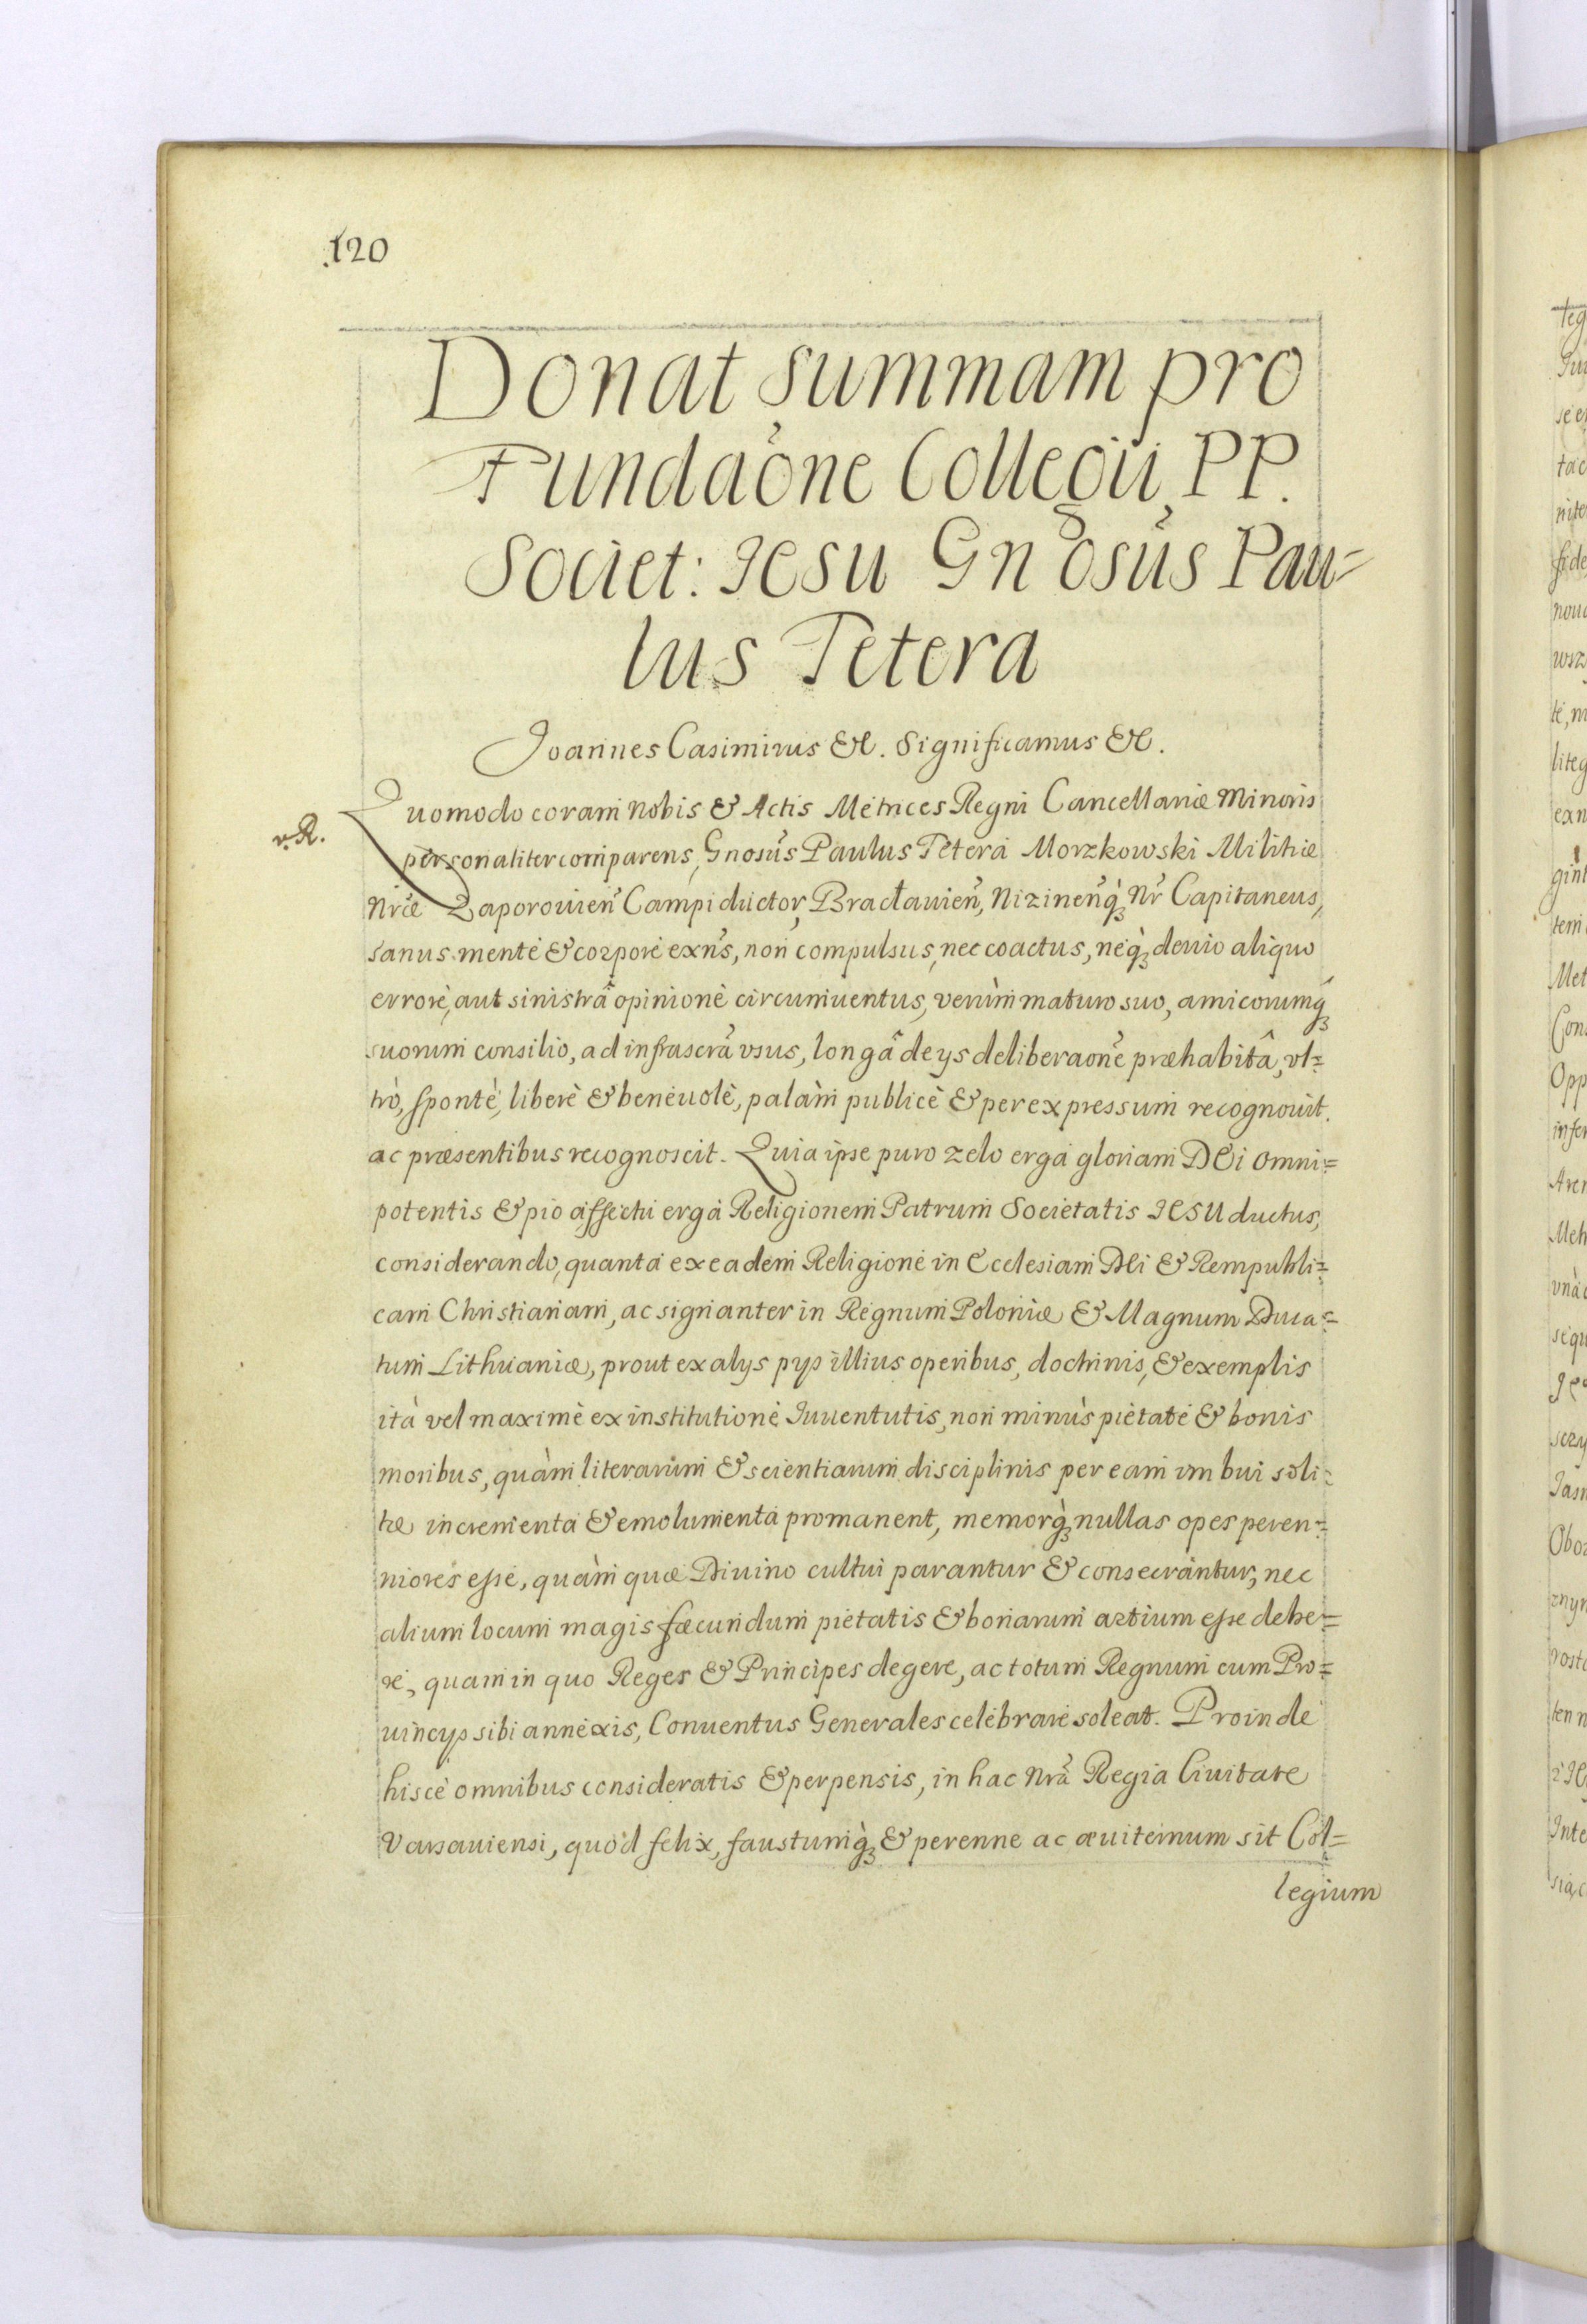 120
Donat summam pro
Fundaõne Collegii PP.
Societ: Jesu Gnosus Pau=
lus Tetera
Joannes Casimirus &c. Significamus &c.
v. R.
Quomodo coram nobis & Actis Metrices Regni Cancellariæ Minoris
personaliter comparens, Gnosus Paulus Tetera Morzkowski Militiæ
Nræ Zaporouien Campiductor, Bracłauien, Nizinenq₃ Nr Capitaneus,
sanus mente & corpore exns, non compulsus, nec coactus, neq₃ deuio aliquo
errore, aut sinistrâ opinione circumuentus, verùm maturo suo, amicorumq₃
suorum consilio, ad infrascra vsus, longâ de ys deliberaone præhabitâ, vl=
trò, sponte, liberè & beneuolè, palàm publicè & per expressum recognouit
ac præsentibus recognoscit. Quia ipse puro zelo erga gloriam DEi omni=
potentis & pio affectu erga Religionem Patrum Societatis JESU ductus,
considerando, quanta ex eadem Religione in Ecclesiam DEi & Rempubli=
cam Christianam, ac signanter in Regnum Poloniæ & Magnum Duca=
tum Lithuaniæ, prout ex alys pys illius operibus, doctrinis, & exemplis
ità vel maximè ex institutione Juuentutis, non minùs pietate & bonis
moribus, quàm literarum & scientiarum disciplinis per eam imbui soli=
tæ incrementa & emolumenta promanent, memorq₃ nullas opes peren=
niores esse, quàm quæ Diuino cultui parantur & consecrantur, nec
alium locum magis fæcundum pietatis & bonarum artium esse debe=
re, quam in quo Reges & Principes degere, ac totum Regnum cum Pro=
uincys sibi annexis, Conuentus Generales celebrare soleat. Proinde
hisce omnibus consideratis & perpensis, in hac Nra Regia Ciuitate
Varsauiensi, quod felix, faustumq₃ & perenne ac æuiternum sit Col=
legium